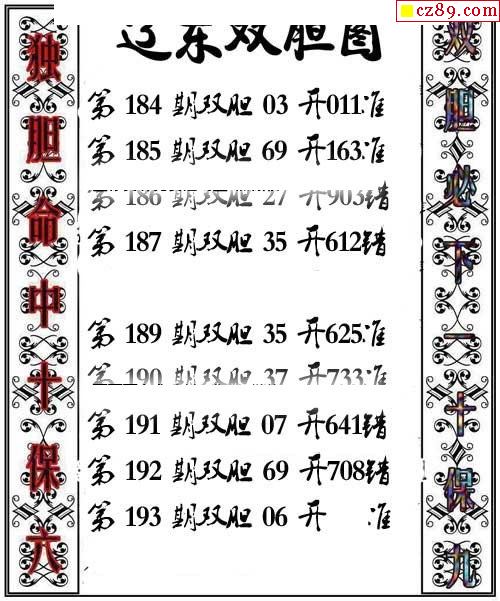 cz89.com
辽东双胆图
独胆命中十保六
第 184 期双胆 03 开011准
第 185 期双胆 69 开163准
第 186 期双胆 27 开903错
第 187 期双胆 35 开612错
第 189 期双胆 35 开625准
第 190 期双胆 37 开733准
第 191 期双胆 07 开641错
第 192 期双胆 69 开708错
第 193 期双胆 06 开 准
双胆必下一十保九